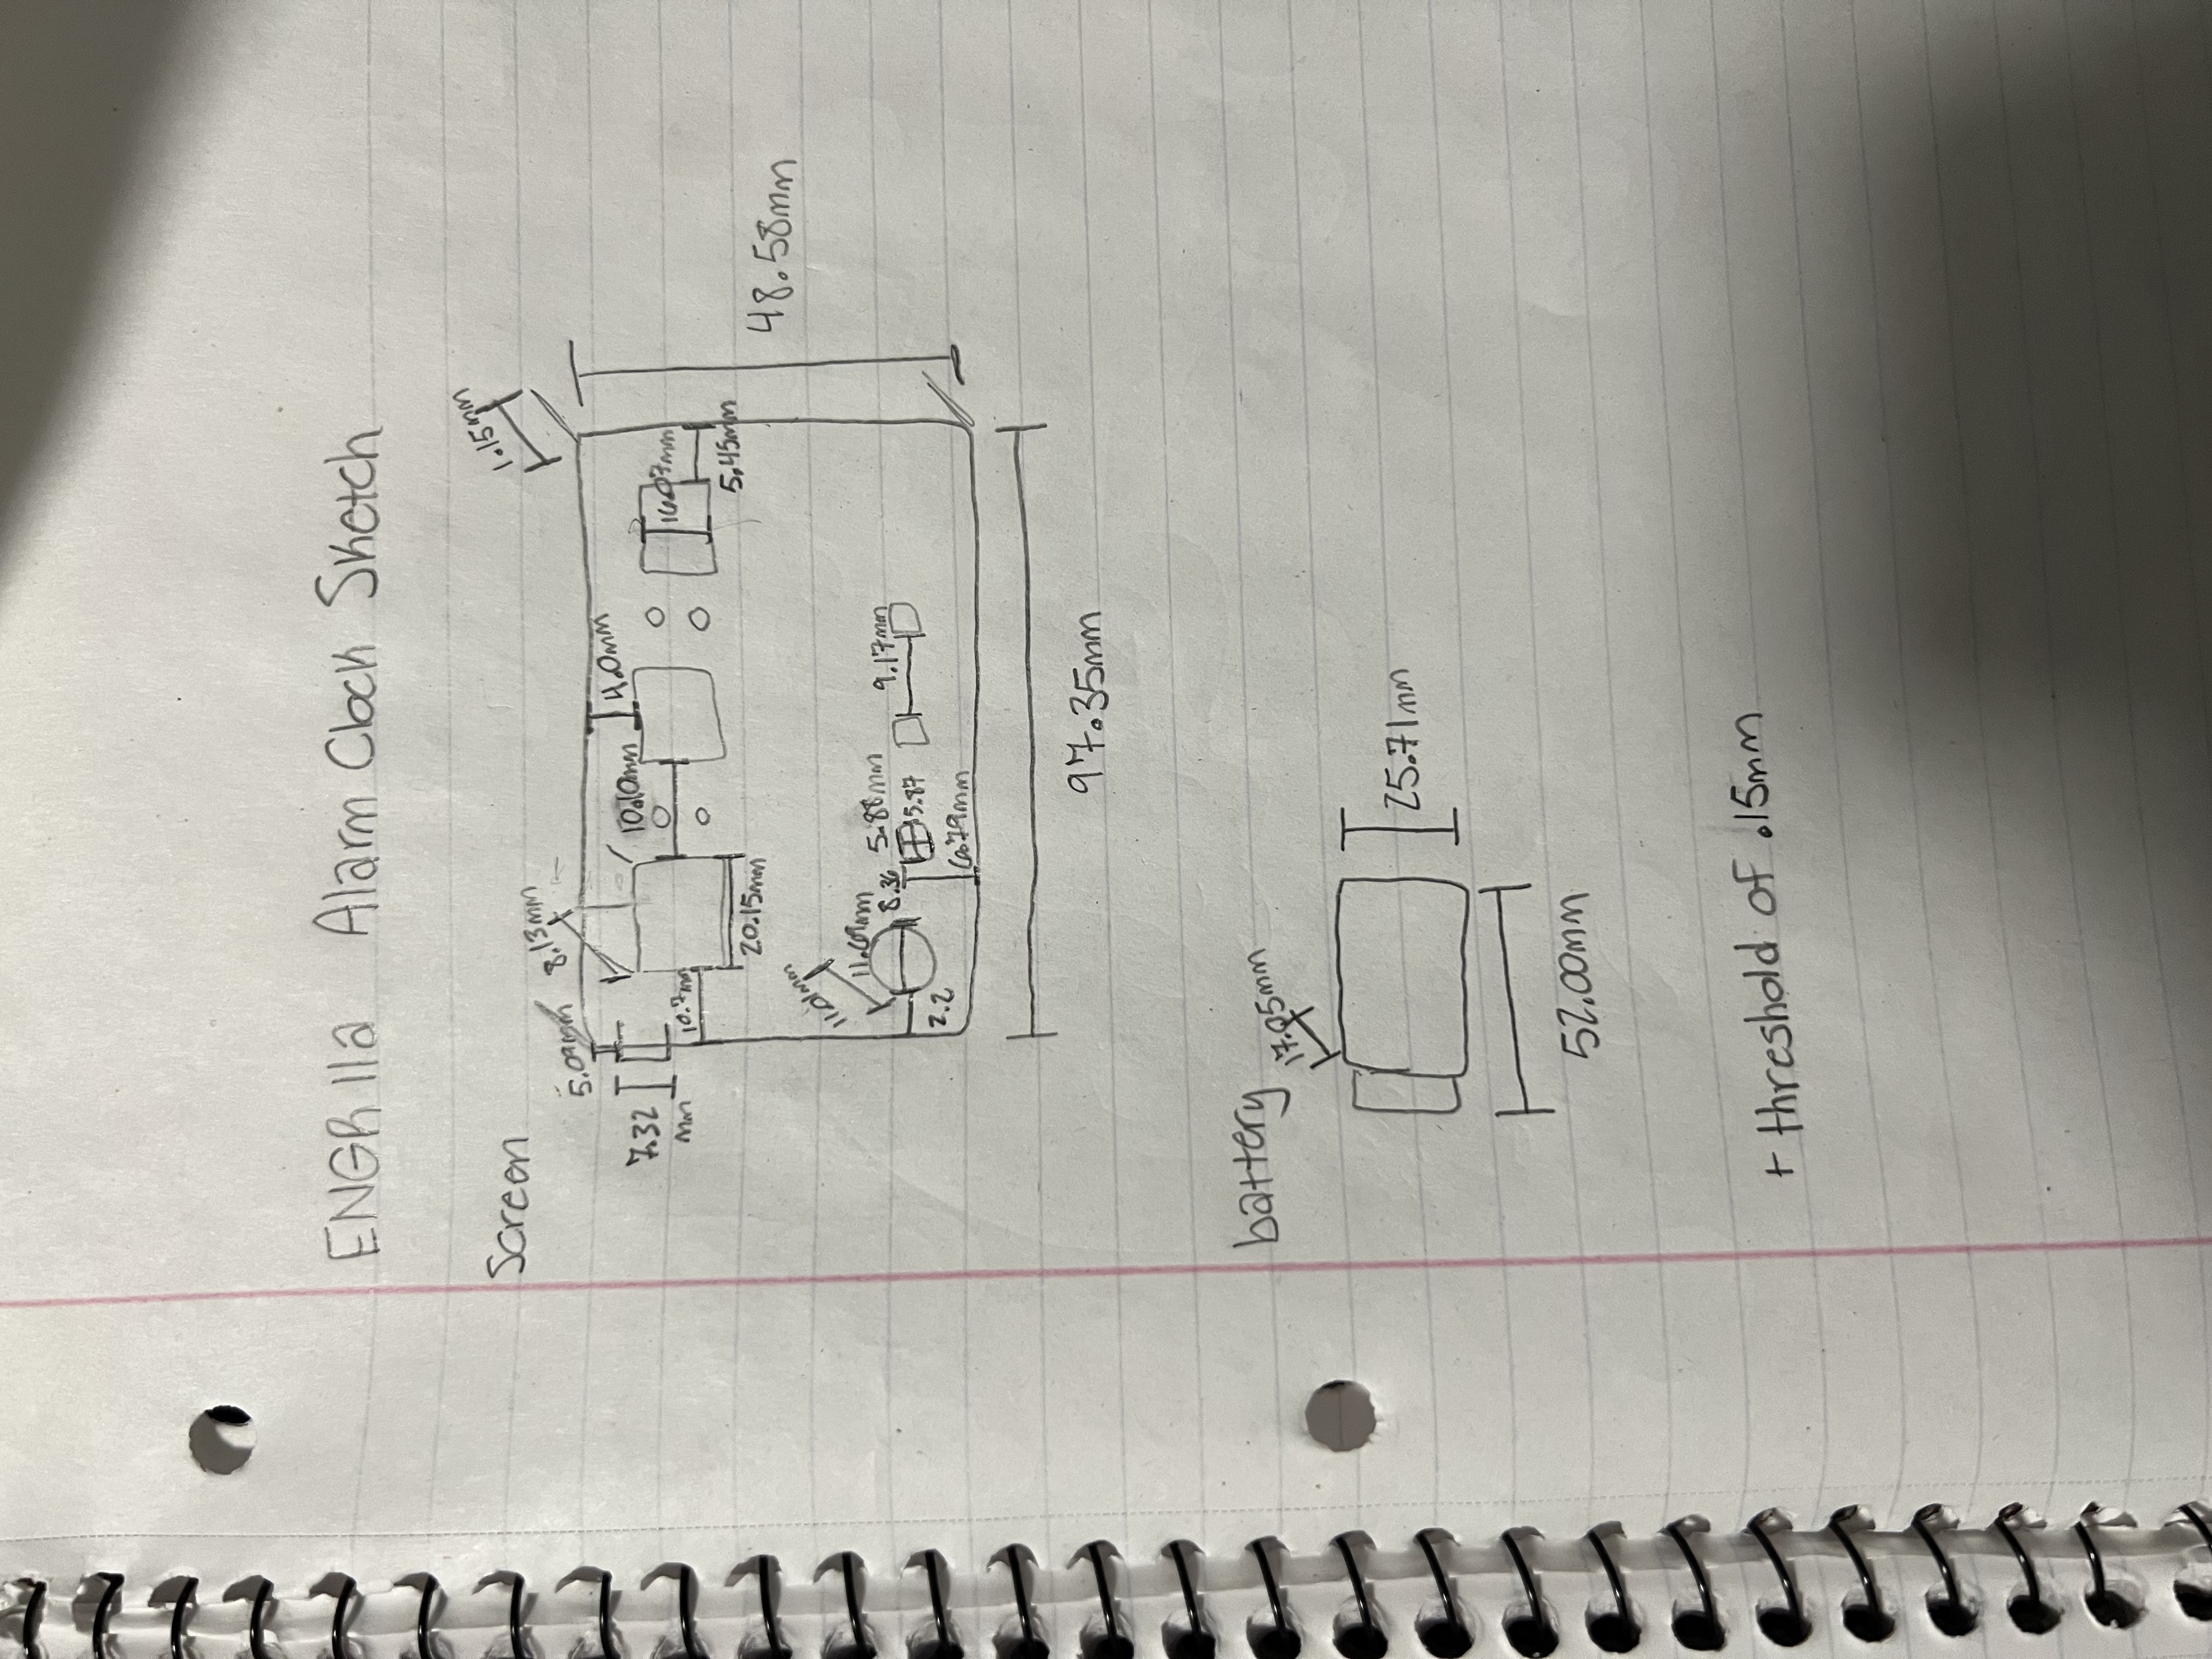 ENGR 11a Alarm Clock Sketch
Screen
1.15mm
5.09mm
8.13mm
7.32
mm
10.10mm
4.0mm
10.7mm
16.07mm
20.15mm
5.45mm
48.58mm
11.01mm
11.69mm
8.36
5.88mm
5.87
9.17mm
2.2
6.79mm
97.35mm
battery
17.05mm
25.71mm
52.00mm
+ threshold of .15mm